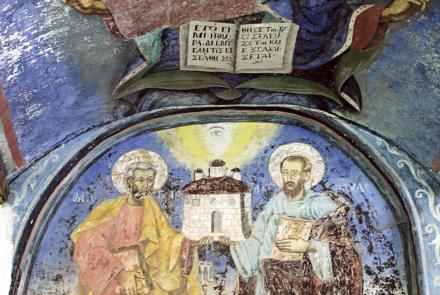 ΕΓΩ ΕΙ
ΜΙ Η ΘΥ
ΡΑ ΔΙ ΕΜΟΥ
ΕΑΝ ΤΙΣ ΕΙ
ΣΕΛΘΗ ΣΩ
ΘΗΣΕΤΑΙ Κ
ΕΙΣΕΛΕΥ
ΣΕΤΑΙ ΚΑΙ
ΕΞΕΛΕΥ
ΣΕΤΑΙ